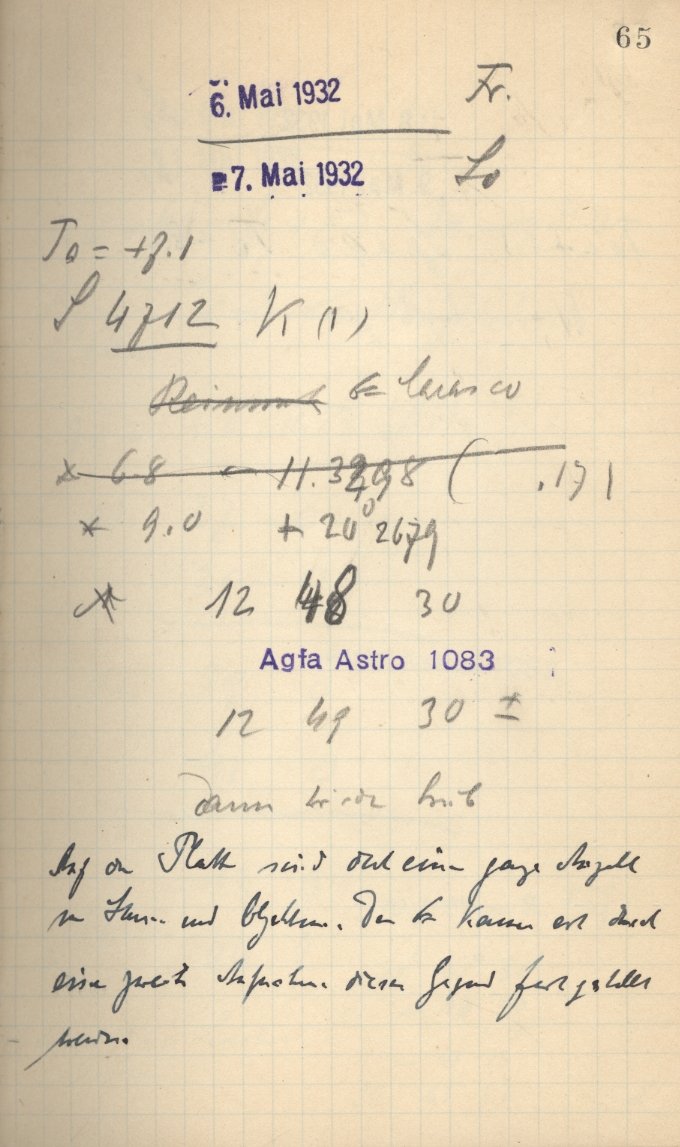 65
6. Mai 1932 Fr.
7. Mai 1932 So
T0 = +7.1
S 4712 K (1)
Reinmuth Carasco
* 6.8 - 11. ( .17)
* 9.0 + 20° 2679
* 12 48 30
Agfa Astro 1083
12 49 30 ±
Dann wieder trüb
Auf der Platte sind doch eine ganze Anzahl
von und Objekten. Der Komet erst durch
eine zweite Aufnahme dieser Gegend festgestellt
werden.